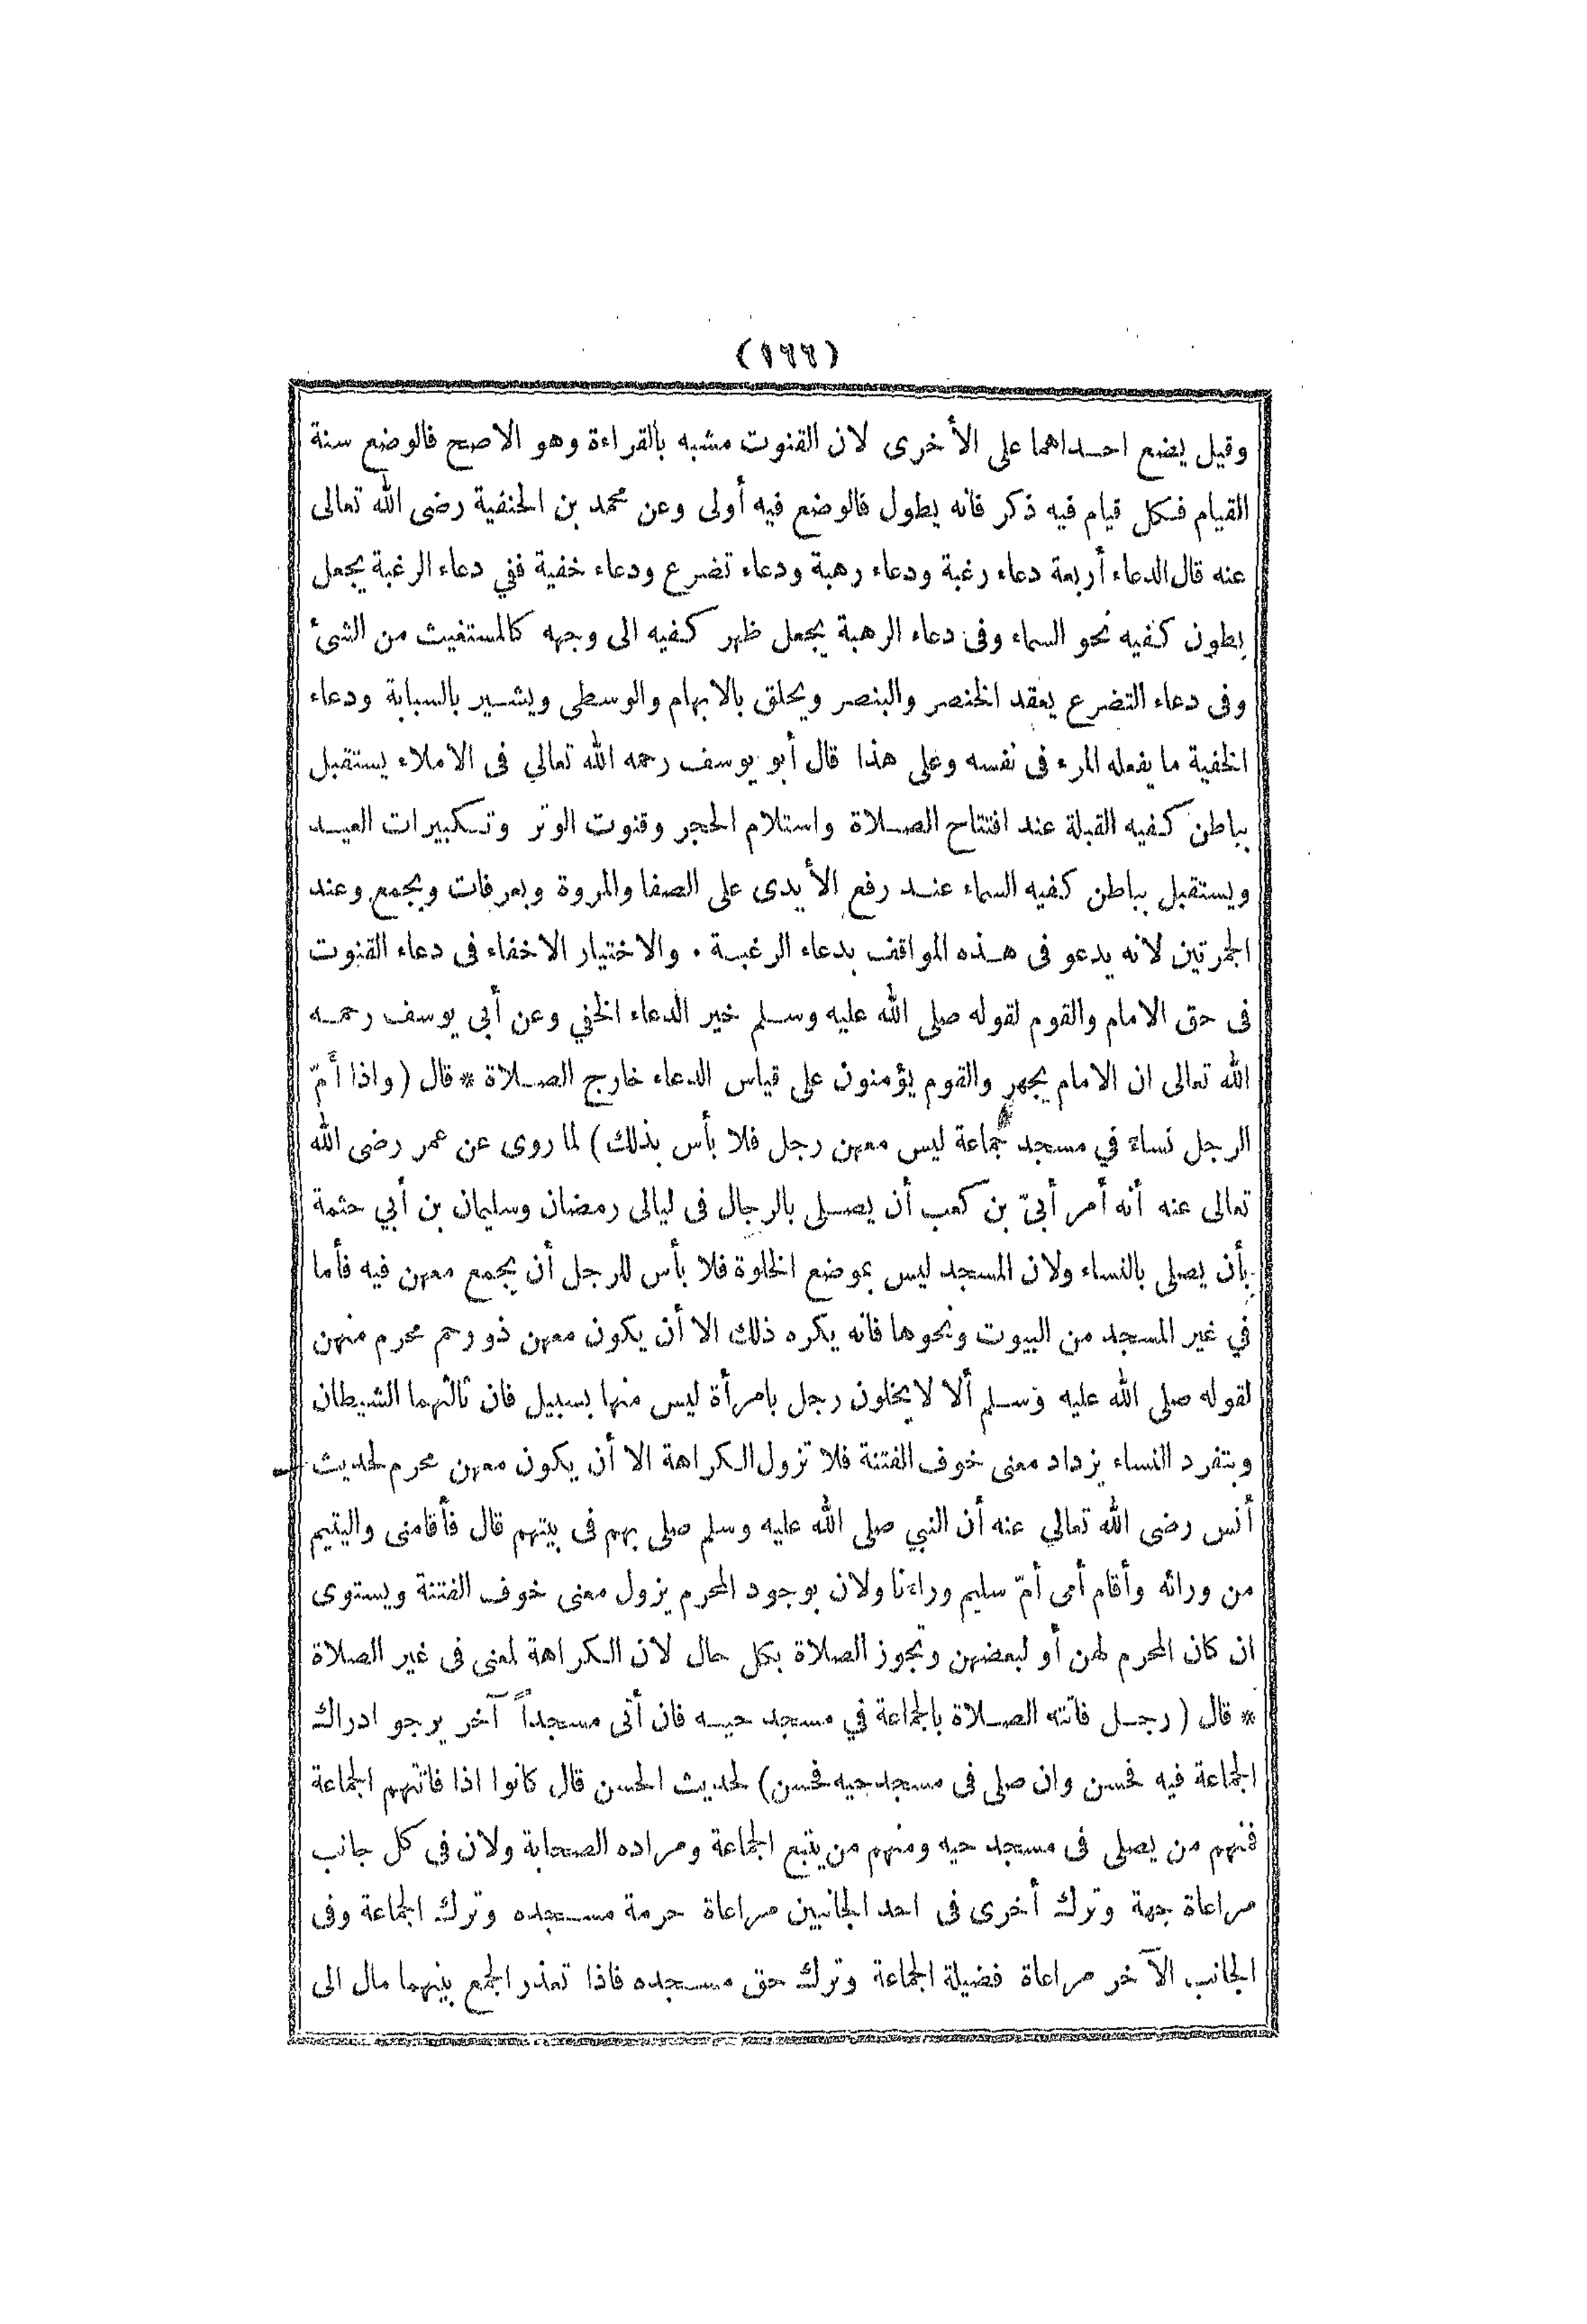 (١٦٦)
وقيل يضع احداهما على الأخرى لان القنوت مشبه بالقراءة وهو الاصح فالوضع سنة
القيام فكل قيام فيه ذكر فانه يطول فالوضع فيه أولى وعن محمد بن الحنفية رضى الله تعالى
عنه قال الدعاء أربعة دعاء رغبة ودعاء رهبة ودعاء تضرع ودعاء خفية ففي دعاء الرغبة يجعل
بطون كفيه نحو السماء وفى دعاء الرهبة يجعل ظهر كفيه الى وجهه كالمستغيث من الشئ
وفى دعاء التضرع يعقد الخنصر والبنصر ويحلق بالابهام والوسطى ويشير بالسبابة ودعاء
الخفية ما يفعله المرء فى نفسه وعلى هذا قال أبو يوسف رحمه الله تعالي فى الاملاء يستقبل
بباطن كفيه القبلة عند افتتاح الصلاة واستلام الحجر وقنوت الوتر وتكبيرات العيد
ويستقبل بباطن كفيه السماء عند رفع الأيدى على الصفا والمروة وبعرفات وبجمع وعند
الجمرتين لانه يدعو فى هذه المواقف بدعاء الرغبة . والاختيار الاخفاء فى دعاء القنوت
فى حق الامام والقوم لقوله صلى الله عليه وسلم خير الدعاء الخفي وعن أبي يوسف رحمه
الله تعالى ان الامام يجهر والقوم يؤمنون على قياس الدعاء خارج الصلاة * قال (واذا أمّ
الرجل نساءً في مسجد جماعة ليس معهن رجل فلا بأس بذلك) لما روى عن عمر رضى الله
تعالى عنه أنه أمر أبىّ بن كعب أن يصلى بالرجال فى ليالى رمضان وسليمان بن أبي حثمة
بأن يصلى بالنساء ولان المسجد ليس بموضع الخلوة فلا بأس للرجل أن يجمع معهن فيه فأما
في غير المسجد من البيوت ونحوها فانه يكره ذلك الا أن يكون معهن ذو رحم محرم منهن
لقوله صلى الله عليه وسلم ألا لا يخلون رجل بامرأة ليس منها بسبيل فان ثالثهما الشيطان
وبتفرد النساء يزداد معنى خوف الفتنة فلا تزول الكراهة الا أن يكون معهن محرم لحديث
أنس رضى الله تعالي عنه أن النبي صلى الله عليه وسلم صلى بهم فى بيتهم قال فأقامنى واليتيم
من ورائه وأقام أمى أمّ سليم وراءنا ولان بوجود المحرم يزول معنى خوف الفتنة ويستوى
ان كان المحرم لهن أو لبعضهن وتجوز الصلاة بكل حال لان الكراهة لمعنى فى غير الصلاة
* قال (رجل فاتته الصلاة بالجماعة في مسجد حيه فان أتى مسجداً آخر يرجو ادراك
الجماعة فيه فحسن وان صلى فى مسجد حيه فحسن) لحديث الحسن قال كانوا اذا فاتتهم الجماعة
فمنهم من يصلى فى مسجد حيه ومنهم من يتبع الجماعة ومراده الصحابة ولان فى كل جانب
مراعاة جهة وترك أخرى فى احد الجانبين مراعاة حرمة مسجده وترك الجماعة وفى
الجانب الآخر مراعاة فضيلة الجماعة وترك حق مسجده فاذا تعذر الجمع بينهما مال الى